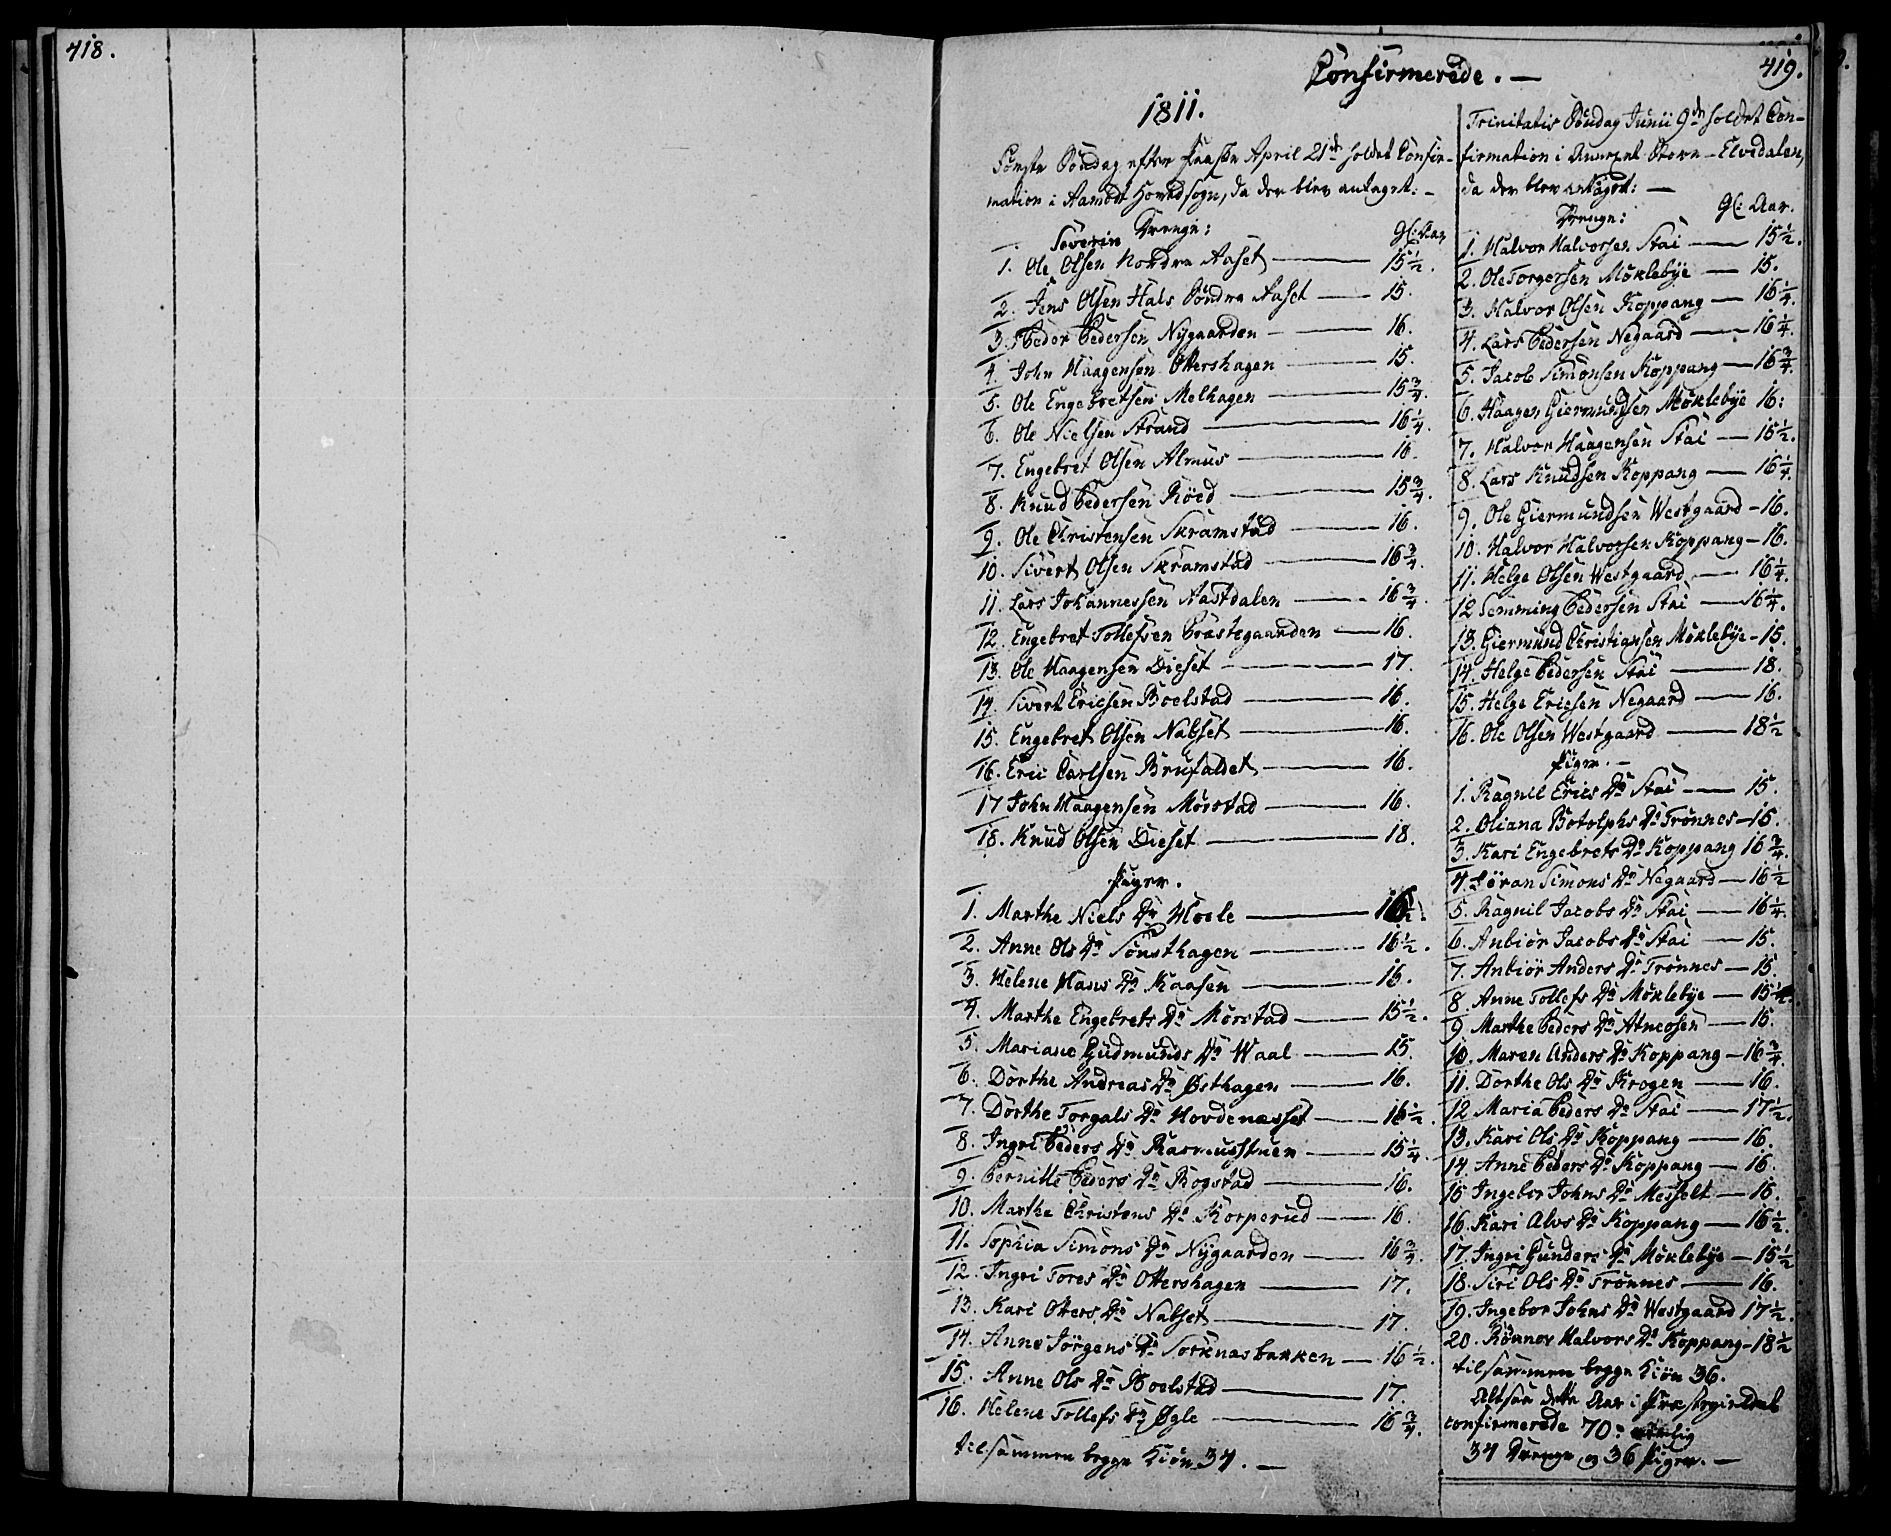 418.
419.
Confirmerede. —
1811.
Første Søndag efter Paaske April 21de holdet Confir-
mation i Aamodt Hovedsogn, da der blev antaget: —
Drenge: Gl: Aar
Severin
1. Ole Olsen Nordre Aaset — 15 1/2.
2. Jens Olsen Hals Søndre Aaset — 15.
3. Peder Pedersen Nÿgaarden — 16.
4. John Haagensen Ottershagen — 15.
5. Ole Engebretsen Melhagen — 15 3/4.
6. Ole Nielsen Strand — 16 1/4.
7. Engebret Olsen Almus — 16.
8. Knud Pedersen Röed — 15 3/4.
9. Ole Christensen Skramstad — 16.
10. Sivert Olsen Skramstad — 16 3/4.
11. Lars Johannessen Aastdalen — 16 3/4.
12. Engebret Tollefsen Præstegaarden — 16.
13. Ole Haagensen Dieset — 17.
14. Sivert Ericsen Boelstad — 16.
15. Engebret Olsen Nabset — 16.
16. Eric Carlsen Brufaldet — 16.
17 John Haagensen Mørstad — 16.
18. Knud Olsen Dieset — 18.
Piger.
1. Marthe Niels Dr Hoele — 16 1/2.
2. Anne Ols Dr Sønsthagen — 16 1/2.
3. Helene Hans Dr Kaasen — 15.
4. Marthe Engebrets Dr Mørstad — 15 1/2.
5. Mariane Gudmunds Dr Waal — 15.
6. Dorthe Andreas Dr Østhagen — 16.
7. Dorthe Torgals Dr Hovdenæsset — 16 1/2.
8. Ingri Peders Dr Rasmusstuen — 15 1/4.
9. Pernille Peders Dr Rogstad — 16.
10. Marthe Christens Dr Korperud — 16.
11. Sophia Simons Dr Nÿgaarden — 16 3/4.
12. Ingri Tores Dr Ottershagen — 17.
13. Kari Otters Dr Nabset — 17.
14. Anne Jörgens Dr Sorknæsbakken — 16 1/2.
15. Anne Ols Dr Boelstad — 17.
16. Helene Tollefs Dr Øgle — 16 3/4.
tilsammen begge Kiøn 34. —
Trinitatis Søndag Junii 9de holdet Con-
firmation i Annexet Store-Elvedalen,
da der blev antaget: —
Drenge: Gl: Aar.
1. Halvor Halvorsen Stai — 15 1/2.
2. Ole Torgersen Möklebÿe — 15.
3. Halvor Olsen Koppang — 16 1/4.
4. Lars Pedersen Negaard — 16 1/4.
5. Jacob Simonsen Koppang — 16 3/4.
6. Haagen Giermundsen Möklebÿe 16:
7. Halvor Haagensen Stai — 15 1/2.
8. Lars Knudsen Koppang — 16 1/4.
9. Ole Giermundsen Westgaard — 16.
10. Halvor Halvorsen Koppang — 16.
11. Helge Olsen Westgaard — 16 1/4.
12 Semming Pedersen Stai — 16 1/4.
13. Giermund Christiansen Möklebÿe — 15.
14. Helge Pedersen Stai — 18.
15. Helge Ericsen Negaard — 16.
16. Ole Olsen Westgaard — 18 1/2
Piger. —
1. Ragnil Erics Dr Stai — 15.
2. Oliana Botolphs Dr Trønnes — 15.
3. Kari Engebrets Dr Koppang 16 3/4.
4. Jöran Simons Dr Negaard — 16 1/2
5. Ragnil Jacobs Dr Stai — 16 1/4.
6. Anbiör Jacobs Dr Stai — 15.
7. Anbiör Anders Dr Trønnes — 15.
8 Anne Tollefs Dr Möklebÿe — 15 1/2.
9 Marthe Peders Dr Atneosen — 15.
10. Maren Anders Dr Koppang — 16 3/4.
11. Dorthe Ols Dr Krogen — 16.
12 Maria Peders Dr Stai — 17 1/2.
13. Kari Ols Dr Koppang — 16.
14. Anne Peders Dr Koppang — 16.
15 Ingebor Johns Dr Messelt — 16.
16. Kari Alvs Dr Koppang — 16 1/2.
17. Ingri Gunders Dr Möklebÿe — 15 1/2
18. Siri Ols Dr Trønnes — 16.
19. Ingebor Johns Dr Westgaard 17 1/2.
20. Rønnov Halvors Dr Koppang — 18 1/2
tilsammen begge Kiön 36.
Altsaa dette Aar i Præstegieldet
confirmerede 70: nemlig
34 Drenge og 36 Piger. —